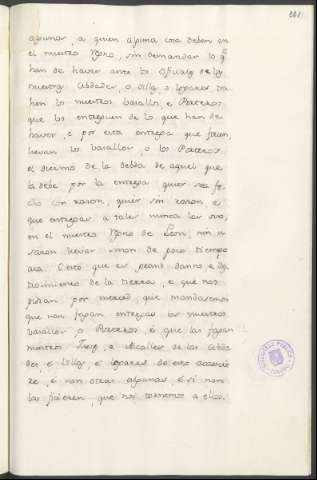 101
algunos, a quien alguna cosa deban en
el nuestro Reyno, sin demandar lo q̃
han de haver ante los Oficiales de las
nuestras Cibdades, o Villas, o Logares, va
hen los nuestros Vasallos, e Porteros
que los entreguen de lo que han de
haver, e por esta entrega que facen,
llevan los Vasallos, o los Porteros
el diezmo de la debda de aquel que
la debe por la entrega, quier sea fe
cho con razon, quier sin razon, e
que entregas a tales nunca las ovo,
en el nuestro Reyno de Leon, nin u
saron llevar sinon de poco tiempo
aca. Esto que es grand danno e da
es de la tierra, e que nos
pidian por merced, que mandasemos
que non fagan entregas los nuestros
Vasallos o Porteros, e que las fagan
nuestros Jueces, e Alcalles de las Cibda
des, e Villas e Logares do esto acaescie
re, e non otros algunos, e si non
las ficieren, que nos tornemos a ellos.